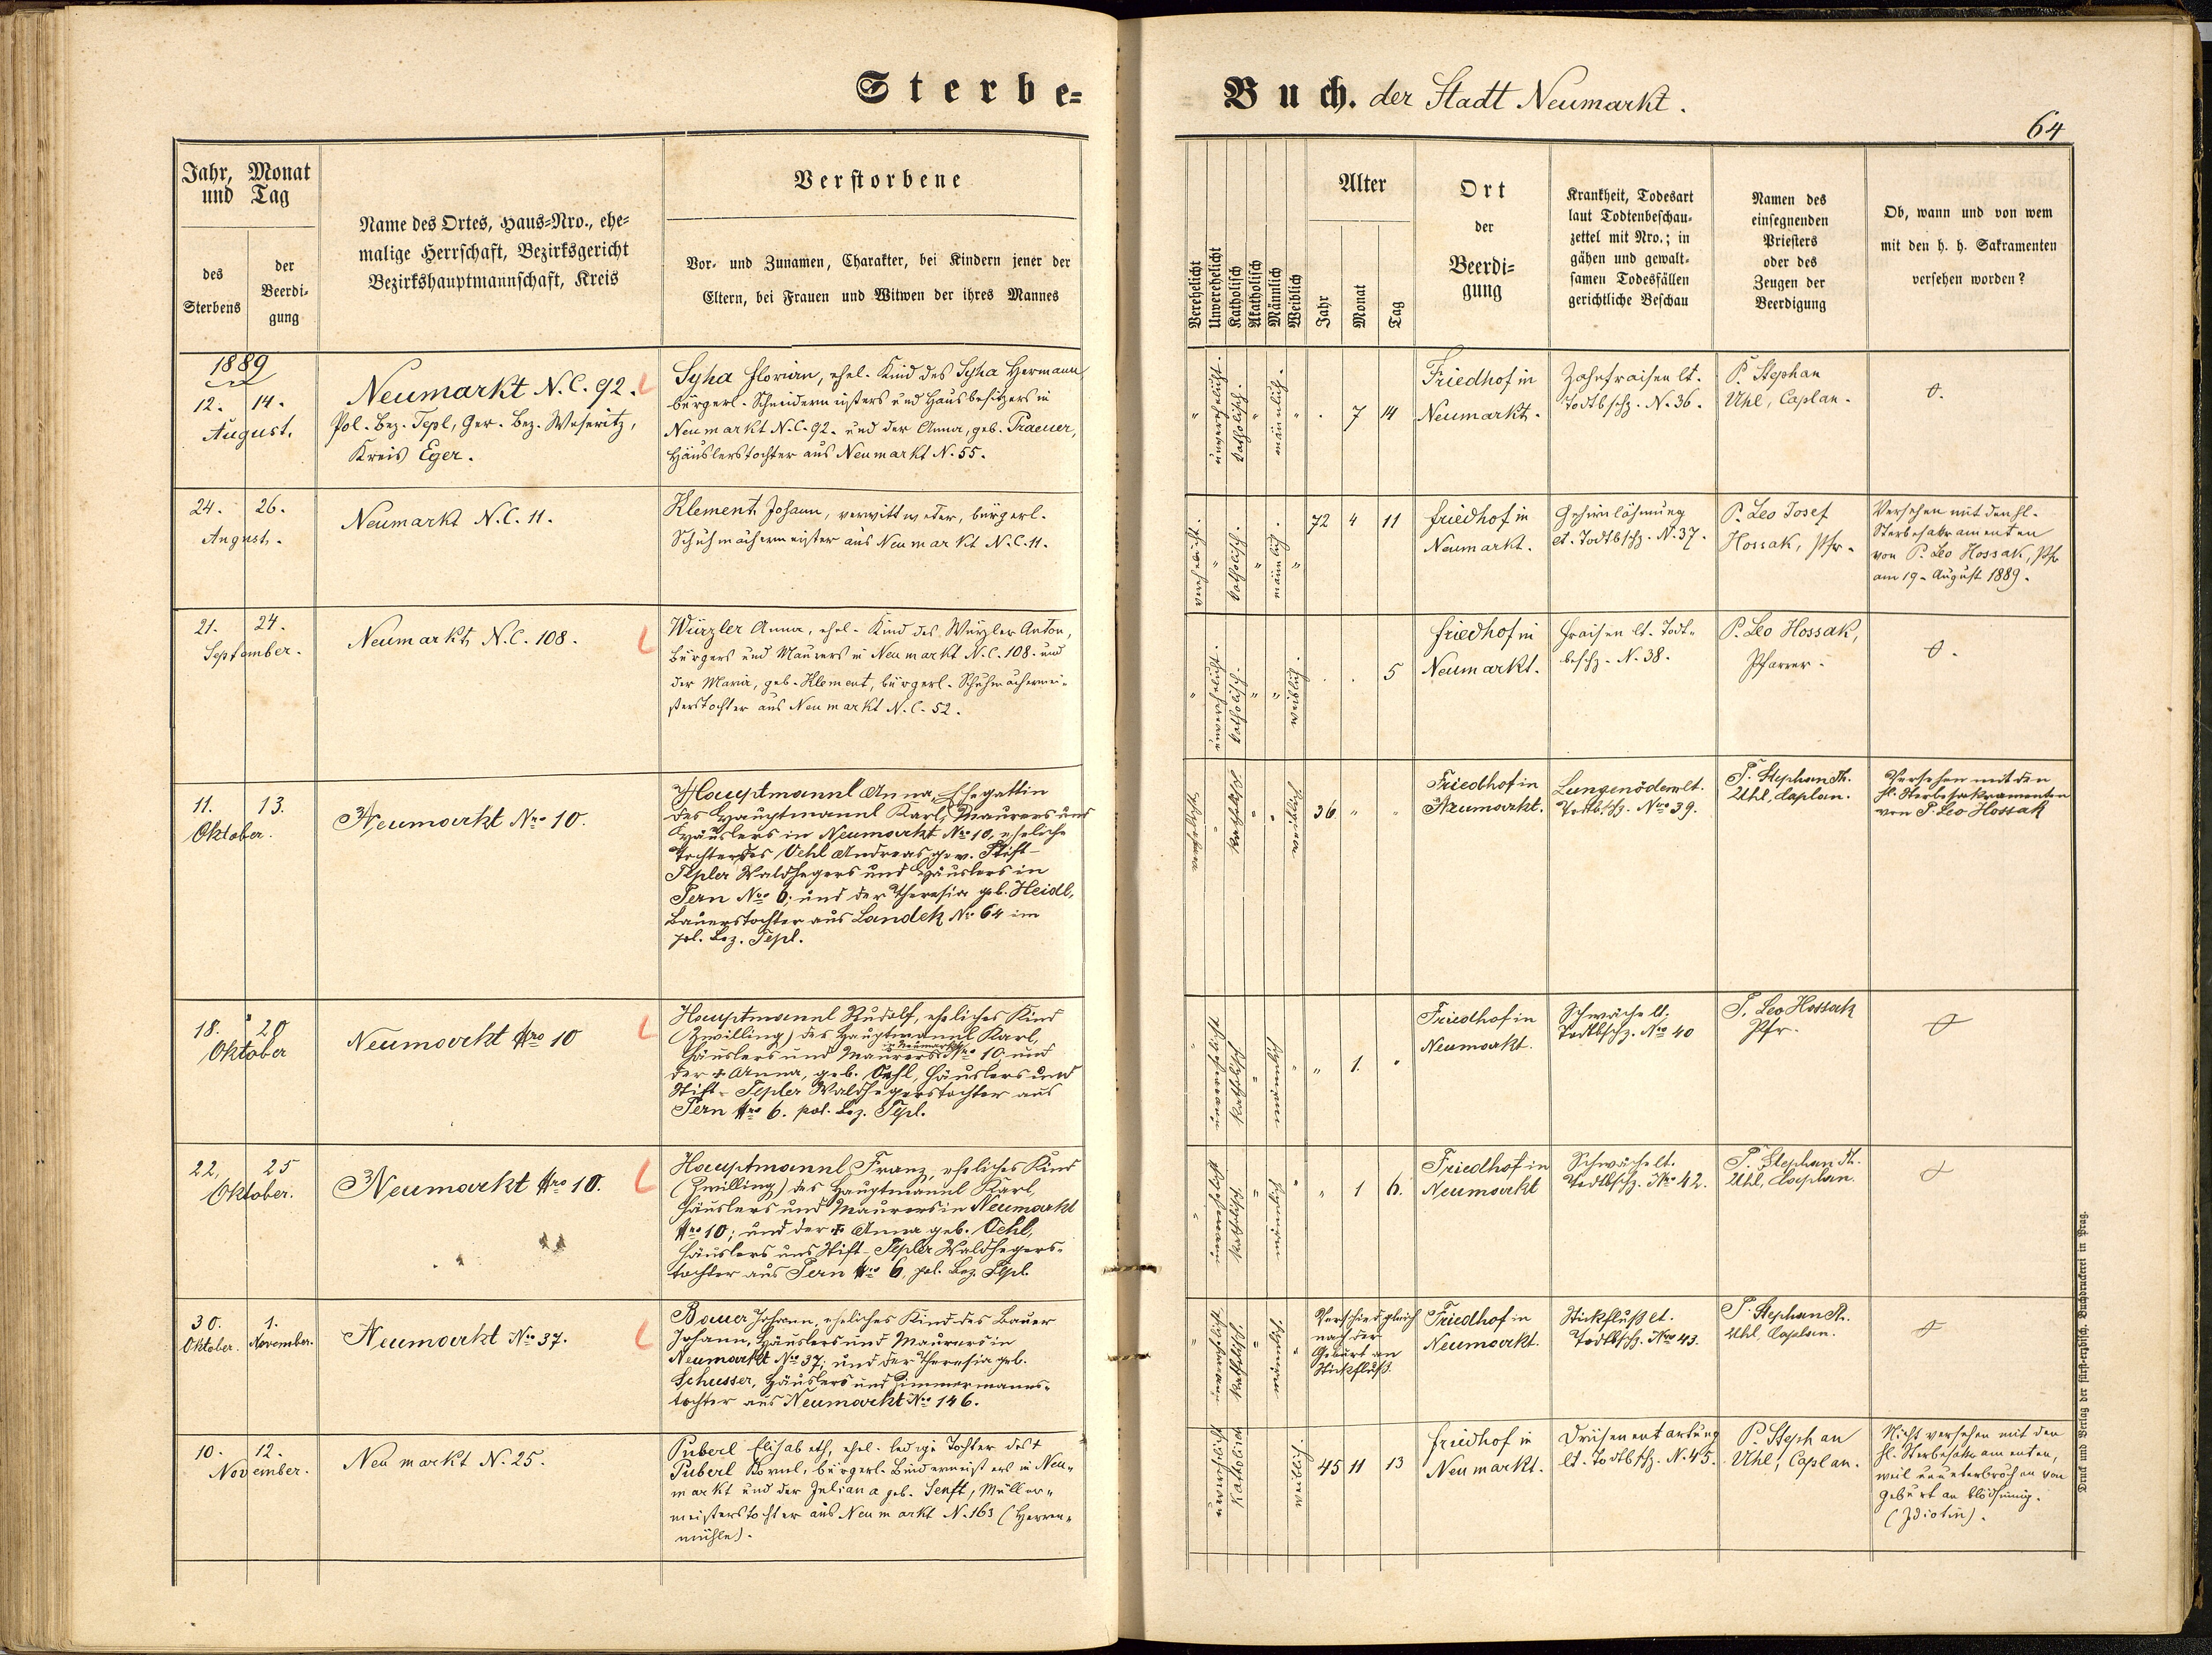 Sterbe-
Buch. der Stadt Neumarkt.
64
Jahr, Monat
und Tag
des
Sterbens
der
Beerdi-
gung
Name des Ortes, Haus-Nro., ehe-
malige Herrschaft, Bezirksgericht
Bezirkshauptmannschaft, Kreis
Verstorbene
Vor- und Zunamen, Charakter, bei Kindern jener der
Eltern, bei Frauen und Witwen der ihres Mannes
Verehelicht
Unverehelicht
Katholisch
Akatholisch
Männlich
Weiblich
Alter
Jahr
Monat
Tag
Ort
der
Beerdi-
gung
Krankheit, Todesart
laut Todtenbeschau-
zettel mit Nro.; in
gähen und gewalt-
samen Todesfällen
gerichtliche Beschau
Namen des
einsegnenden
Priesters
oder des
Zeugen der
Beerdigung
Ob, wann und von wem
mit den h. h. Sakramenten
versehen worden?
1889
12. 14.
August.
Neumarkt N.C. 92.
Pol. Bez. Tepl, Ger. Bez. Weseritz,
Kreis Eger.
Syha Florian, ehel. Kind des Syha Hermann
bürgerl. Schneidermeisters und Hausbesitzers in
Neumarkt N.C. 92. und der Anna, geb. Praeuer,
Häuslerstochter aus Neumarkt N. 55.
unverehelicht.
katholisch.
männlich.
7 14
Friedhof in
Neumarkt.
Zahnfraisen lt.
Todtbschz. N. 36.
P. Stephan
Uhl, Caplan.
0.
24. 26.
August.
Neumarkt N.C. 11.
Klement Johann, verwittweter, bürgerl.
Schuhmachermeister aus Neumarkt N.C. 11.
verehelicht.
katholisch.
männlich
72 4 11
Friedhof in
Neumarkt.
Gehirnlähmung
lt. Todtbschz. N. 37.
P. Leo Josef
Hossak, Pfr.
Versehen mit den hl.
Sterbesakramenten
von P. Leo Hossak, Pfr
am 19. August 1889.
21. 24.
September.
Neumarkt N.C. 108.
Würzler Anna, ehel. Kind des Würzler Anton,
bürgers und Maurers in Neumarkt N.C. 108. und
der Maria, geb. Klement, bürgerl. Schuhmachermei-
sterstochter aus Neumarkt N.C. 52.
unverehelicht.
katholisch.
weiblich.
5
Friedhof in
Neumarkt.
Fraisen lt. Todt-
beschz. N. 38.
P. Leo Hossak,
Pfarrer.
0.
11. 13.
Oktober.
Neumarkt Nro 10.
Hauptmannl Anna, Ehegattin
des Hauptmannl Karl, Maurers und
Häuslers in Neumarkt Nro 10, eheliche
Tochter des Oehl Andreas gew. Stift-
Tepler Waldhegers und Häuslers in
Pern Nro 6; und der Theresia geb. Heidl,
Bauerstochter aus Landek No 64 im
pol. Bez. Tepl.
verehelicht
katholisch
weiblich
36
Friedhof in
Neumarkt.
Lungenödem lt.
Todtbsch. Nro 39.
P. Stephan Th.
Uhl, Caplan.
Versehen mit den
hl. Sterbesakramenten
von P. Leo Hossak
18. 20
Oktober
Neumarkt Nro 10
Hauptmannl Rudolf, eheliches Kind
(Zwilling) des Hauptmannl Karl,
in Neumarkt
Häuslers und Maurers Nro 10 und
der + Anna, geb. Oehl, Häuslers und
Stift-Tepler Waldhegerstochter aus
Pern Nro 6. pol. Bez. Tepl.
unverehelicht
katholisch
männlich
1.
Friedhof in
Neumarkt.
Schwäche lt.
Todtbschz. Nro 40
P. Leo Hossak
Pfr.
0
22, 25
Oktober.
Neumarkt Nro 10.
Hauptmannl Franz, eheliches Kind
(Zwilling) des Hauptmannl Karl,
Häuslers und Maurers in Neumarkt
Nro 10; und der + Anna geb. Oehl,
Häuslers und Stift-Tepler Waldhegers-
tochter aus Pern Nro 6, pol. Bez. Tepl.
unverehelicht
katholisch
männlich
1 6.
Friedhof in
Neumarkt
Schwäche lt.
Todtbschz. Nro 42.
P. Stephan Th.
Uhl, Caplan.
0
30. 1.
Oktober. November.
Neumarkt Nro 37.
Bauer Johann, eheliches Kind des Bauer
Johann, Häuslers und Maurers in
Neumarkt Nro 37; und der Theresia geb.
Schusser, Häuslers und Zimmermanns-
tochter aus Neumarkt Nro 146.
unverehelicht
katholisch
männlich
Verschied gleich
nach der
Geburt an
Stickfluß.
Friedhof in
Neumarkt.
Stickfluß lt.
Todtbsch. Nro 43.
P. Stephan Th.
Uhl, Caplan.
0
10. 12.
November.
Neumarkt N. 25.
Puberl Elisabeth, ehel. ledige Tochter des +
Puberl Kornel, bürgerl. Bindermeisters in Neu-
markt und der Juliana geb. Senft, Müller-
meisterstochter aus Neumarkt N. 163 (Herren-
mühle).
unverehelicht
katholisch
weiblich.
45 11 13
Friedhof in
Neumarkt.
Drüsenentartung
lt. Todtbsch. N. 45.
P. Stephan
Uhl, Caplan.
Nicht versehen mit den
hl. Sterbesakramenten,
weil ununterbrochen von
Geburt an blödsinnig.
(Idiotin).
Druck und Verlag der fürst-erzbisch. Buchdruckerei in Prag.